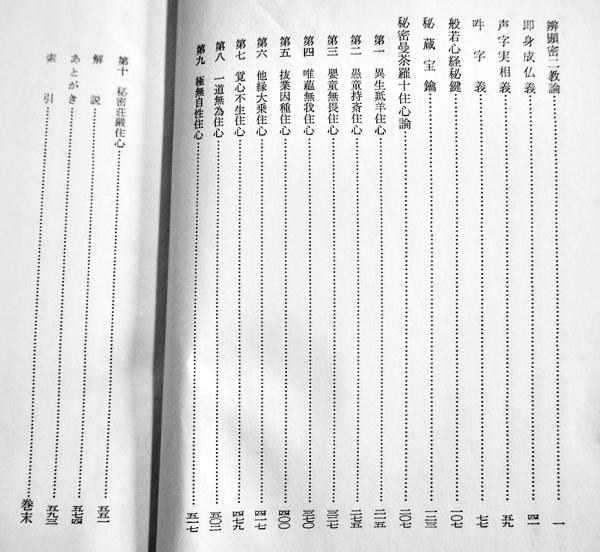 辨顕密二教論……一
即身成仏義……四一
声字実相義……五九
吽字義……七七
般若心経秘鍵……一〇七
秘蔵宝鑰……一二三
秘密曼荼羅十住心論……二〇七
第一 異生羝羊住心……二一五
第二 愚童持斎住心……二七五
第三 嬰童無畏住心……三二七
第四 唯蘊無我住心……三七〇
第五 抜業因種住心……四〇〇
第六 他縁大乗住心……四一七
第七 覚心不生住心……四七九
第八 一道無為住心……五〇二
第九 極無自性住心……五一七
第十 秘密荘厳住心……五五一
解説……五七四
あとがき……五九三
索引……巻末